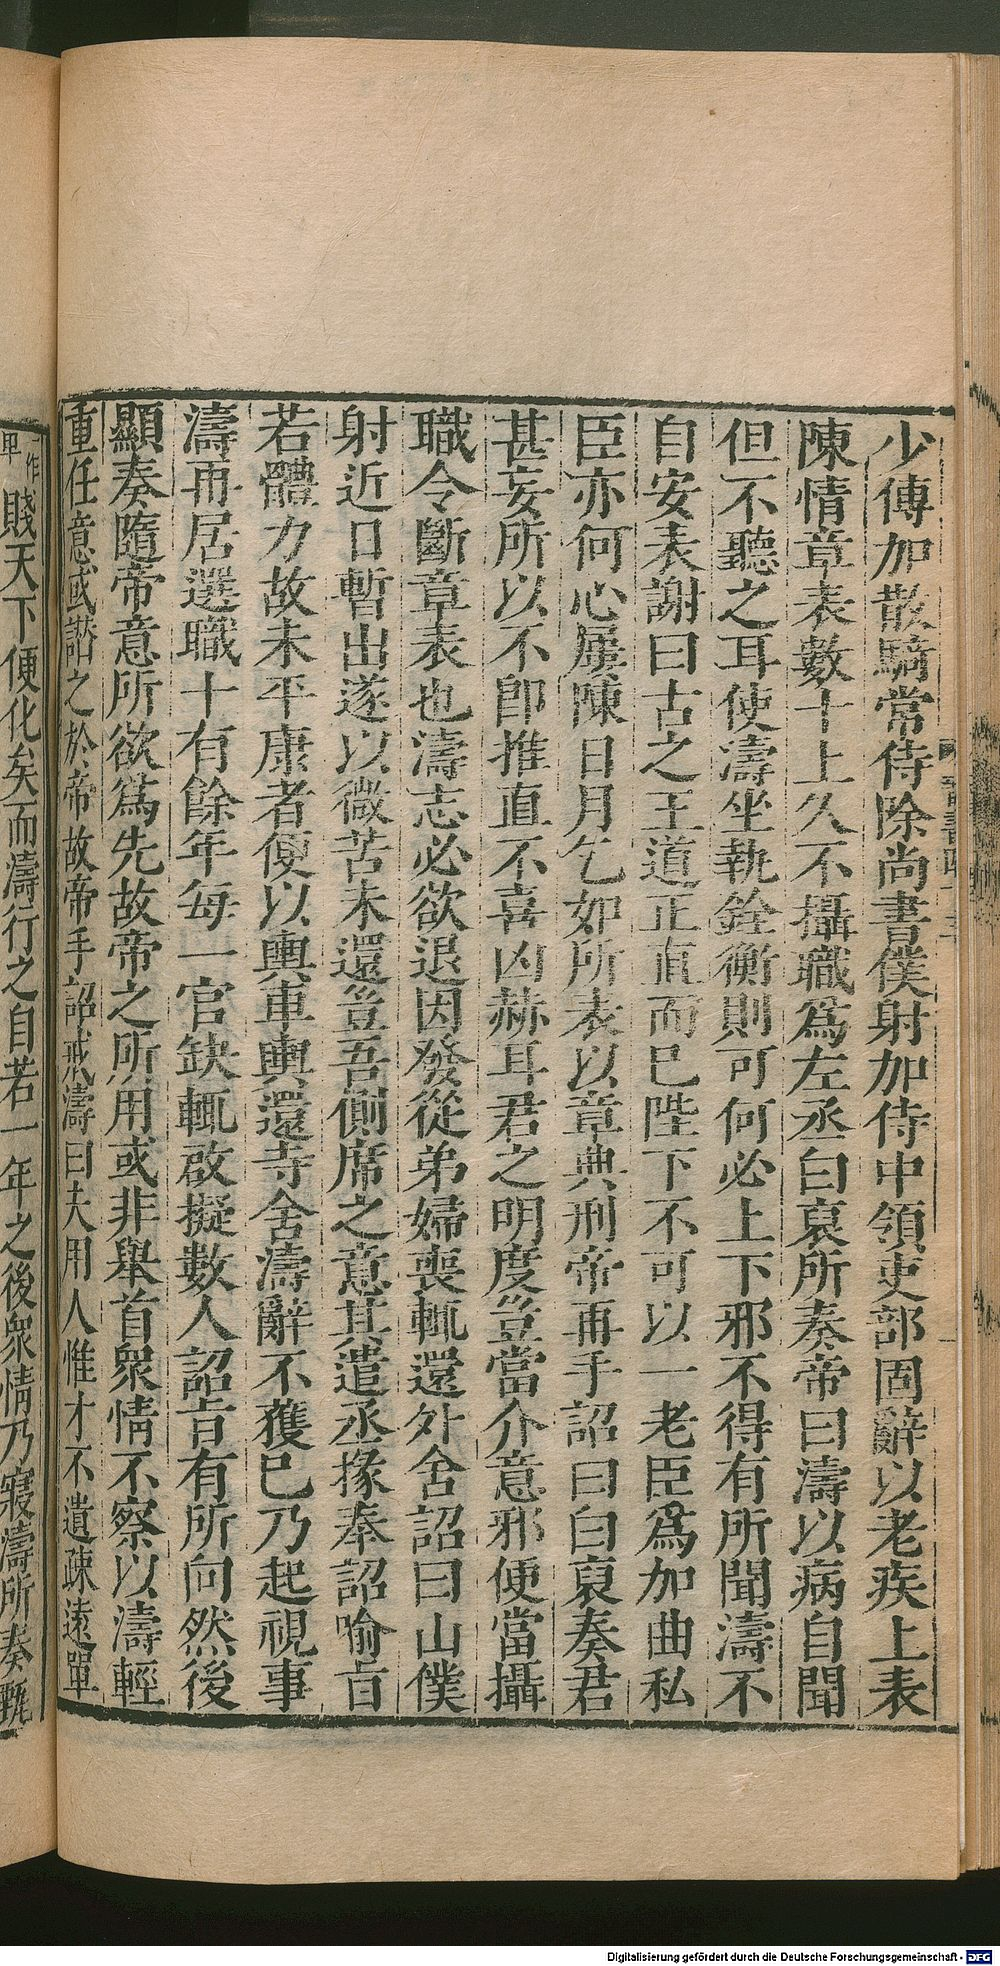 少傅加散騎常侍除尚書僕射加侍中領吏部固辭以老疾上表
陳情章表數十上久不攝職爲左丞白裒所奏帝曰濤以病自聞
但不聽之耳使濤坐執銓衡則可何必上下邪不得有所聞濤不
自安表謝曰古之王道正直而已陛下不可以一老臣爲加曲私
臣亦何心屢陳日月乞如所表以章典刑帝再手詔曰白裒奏君
甚妄所以不卽推直不喜凶赫耳君之明度豈當介意邪便當攝
職令斷章表也濤志必欲退因發從弟婦喪輒還外舍詔曰山僕
射近日暫出遂以微苦未還豈吾側席之意其遣丞掾奉詔喻旨
若體力故未平康者便以輿車輿還寺舍濤辭不獲已乃起視事
濤再居選職十有餘年每一官缺輒啟擬數人詔旨有所向然後
顯奏隨帝意所欲爲先故帝之所用或非舉首衆情不察以濤輕
重任意或譖之於帝故帝手詔戒濤曰夫用人惟才不遺疎遠單
一作卑賤天下便化矣而濤行之自若一年之後衆情乃寢濤所奏甄
Digitalisierung gefördert durch die Deutsche Forschungsgemeinschaft - DFG